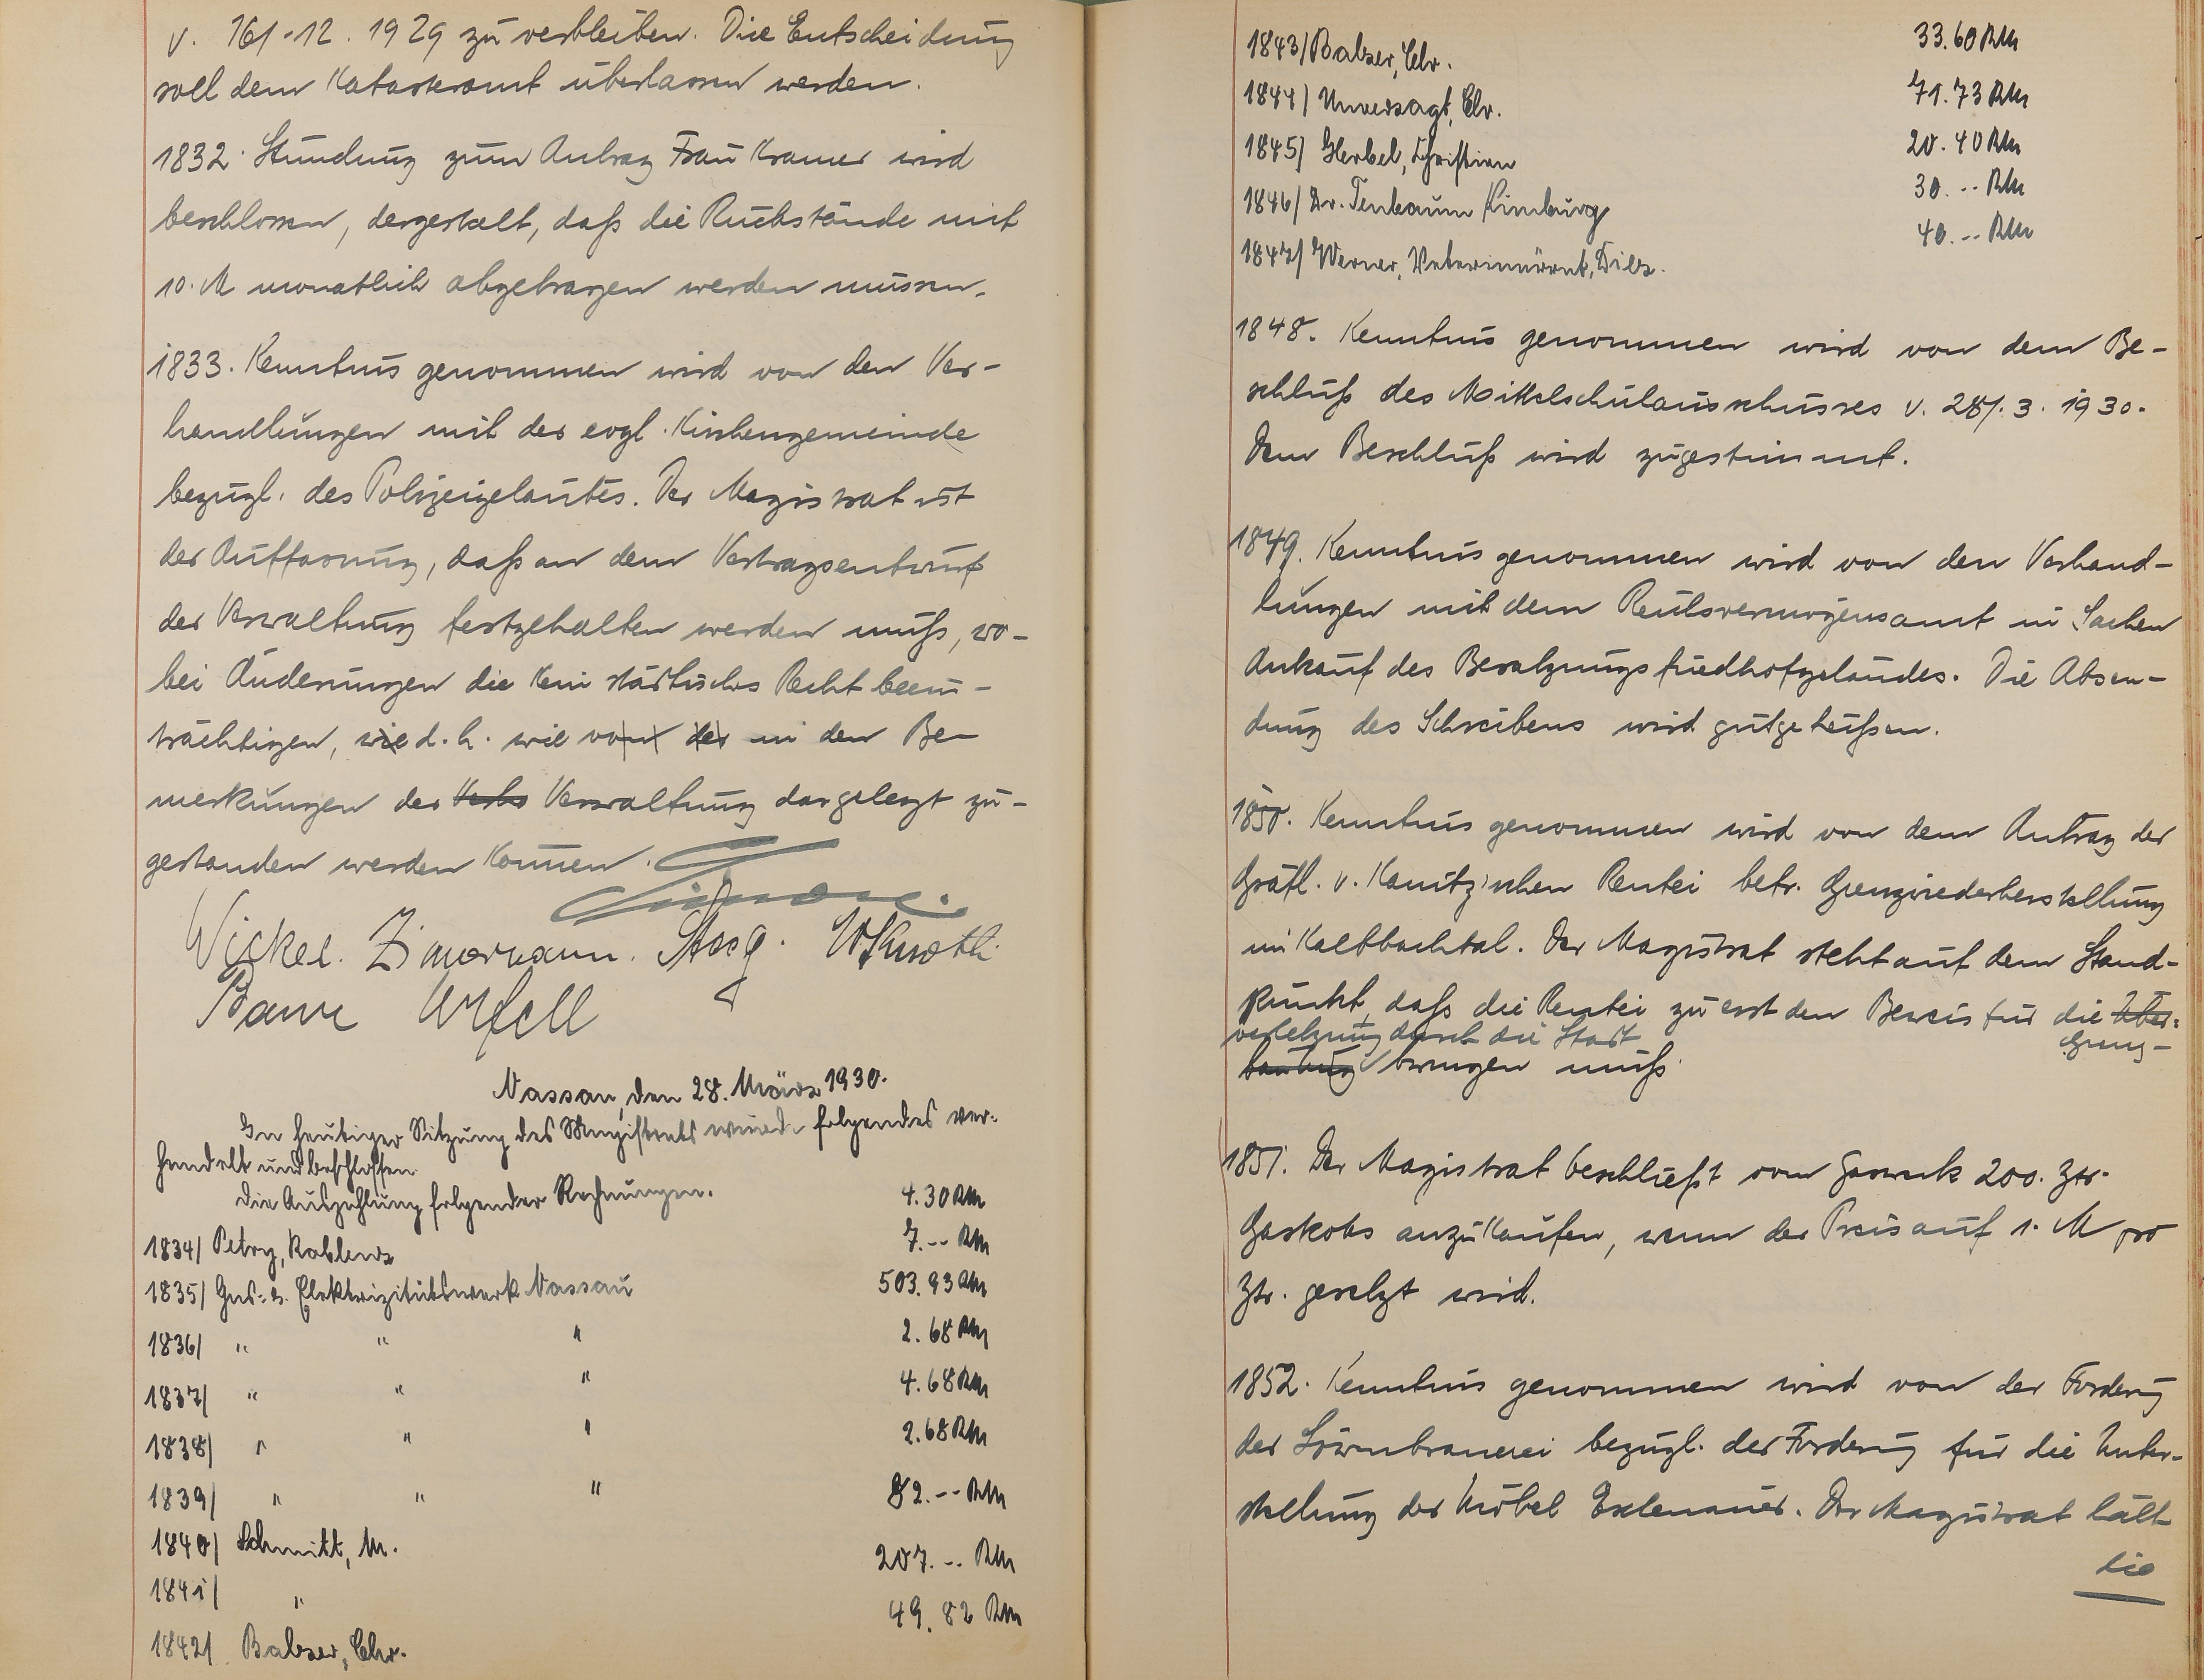 v. 16/.12. 1929 zu verbleiben. Die Entscheidung
soll dem Katasteramt überlassen werden.
1832. Stundung zum Antrag Frau Kramer wird
beschlossen, dergestalt, daß die Rückstände mit
10. M monatlich abgetragen werden müssen.
1833. Kenntnis genommen wird von den Ver-
handlungen mit der evgl. Kirchengemeinde
bezügl. des Polizeigeläutes. Der Magistrat ist
der Auffassung, daß an dem Vertragsentwurf
der Verwaltung festgehalten werden muß, wo-
bei Änderungen die kein städtisches Recht beein-
trächtigen, wie d. h. wie vom der in den Be-
merkungen der Verwaltung dargelegt zu-
gestanden werden können.
Wickel. Zimmermann. W Knoth
Nassau, den 28. März 1930.
In heutiger Sitzung des Magistrats wurde folgendes ver-
handelt und beschlossen
Die Auszahlung folgender Rechnungen.
1834/ Petry, Koblenz 4.30 RM
1835/ Gas- u. Elektrizitätswerk Nassau 7.-- RM
1836/ " " " 503.93 RM
1837/ " " " 2.68 RM
1838/ " " " 4.68 RM
1839/ " " " 2.68 RM
1840/ Schmitt, M. 82.-- RM
1841/ " 207.-- RM
1842/ Balzer, Chr. 49.82 RM
1843/ Balzer, Chr. 33.60 RM
1844/ Unverzagt, Chr. 71.73 RM
1845/ Herbel, Christian 20.40 RM
1846/ Dr. Tenbaum Limburg 30.-- RM
1847/ Werner, Veterinärrat, Diez. 40.-- RM
1848. Kenntnis genommen wird von dem Be-
schluß des Mittelschulausschusses v. 28/.3. 1930.
Dem Beschluß wird zugestimmt.
1849. Kenntnis genommen wird von den Verhand-
lungen mit dem Reichsvermögensamt in Sachen
Ankauf des Besatzungsfriedhofgeländes. Die Absen-
dung des Schreibens wird gutgeheißen.
1850. Kenntnis genommen wird von dem Antrag der
Gräfl. v. Kanitz'schen Rentei betr. Grenzwiederherstellung
im Kaltbachtal. Der Magistrat steht auf dem Stand-
punkt, daß die Rentei zuerst den Beweis für die Über-
Grenz-
verletzung durch die Stadt
bauung bringen muß.
1851. Der Magistrat beschließt vom Gaswerk 200. Ztr.
Gaskoks anzukaufen, wenn der Preis auf 1. M pro
Ztr. gesetzt wird.
1852. Kenntnis genommen wird von der Forderung
der Löwenbrauerei bezügl. der Forderung für die Unter-
stellung der Möbel. Der Magistrat hält
die